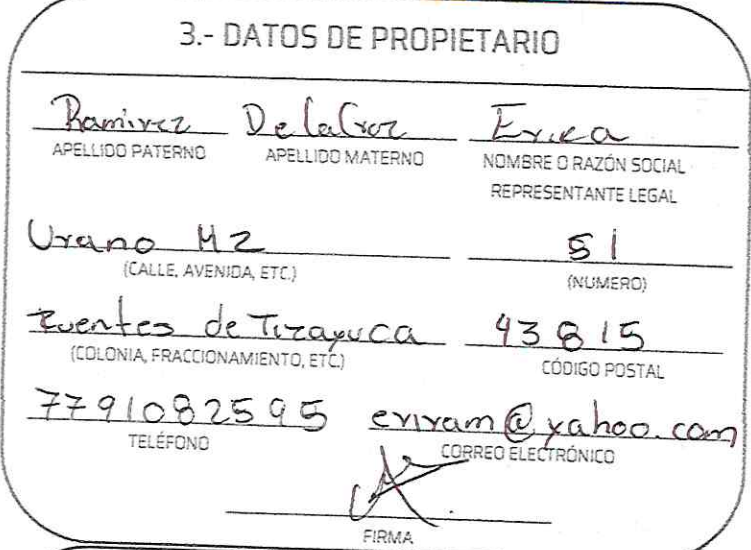 3.- DATOS DE PROPIETARIO
Ramirez De la Croz Erica
APELLIDO PATERNO APELLIDO MATERNO NOMBRE O RAZÓN SOCIAL
REPRESENTANTE LEGAL
Urano M2 51
(CALLE, AVENIDA, ETC.) (NUMERO)
Fuentes de Tizayuca 43815
(COLONIA, FRACCIONAMIENTO, ETC.) CÓDIGO POSTAL
7791082595 eriram@yahoo.com
TELÉFONO CORREO ELECTRÓNICO
FIRMA